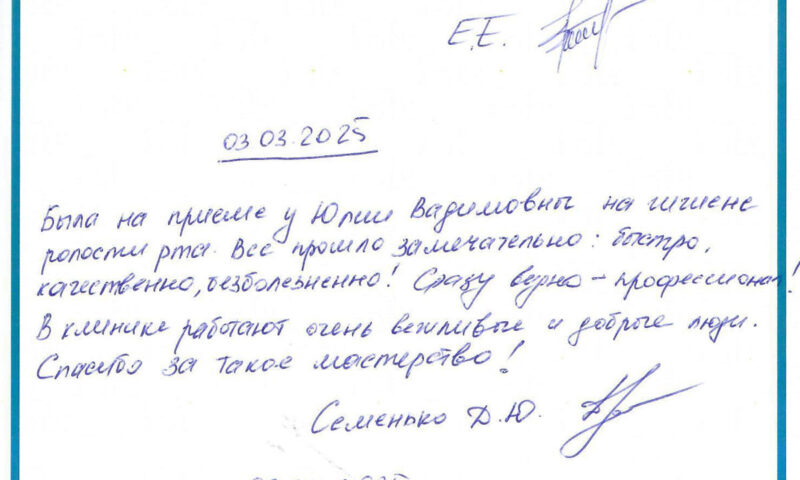 Е.Е.
03 03.2025
Была на приеме у Юлии Вадимовны на гигиене
полости рта. Все прошло замечательно: быстро,
качественно, безболезненно! Сразу видно – профессионал!
В клинике работают очень вежливые и добрые люди.
Спасибо за такое мастерство!
Семенько Д.Ю.